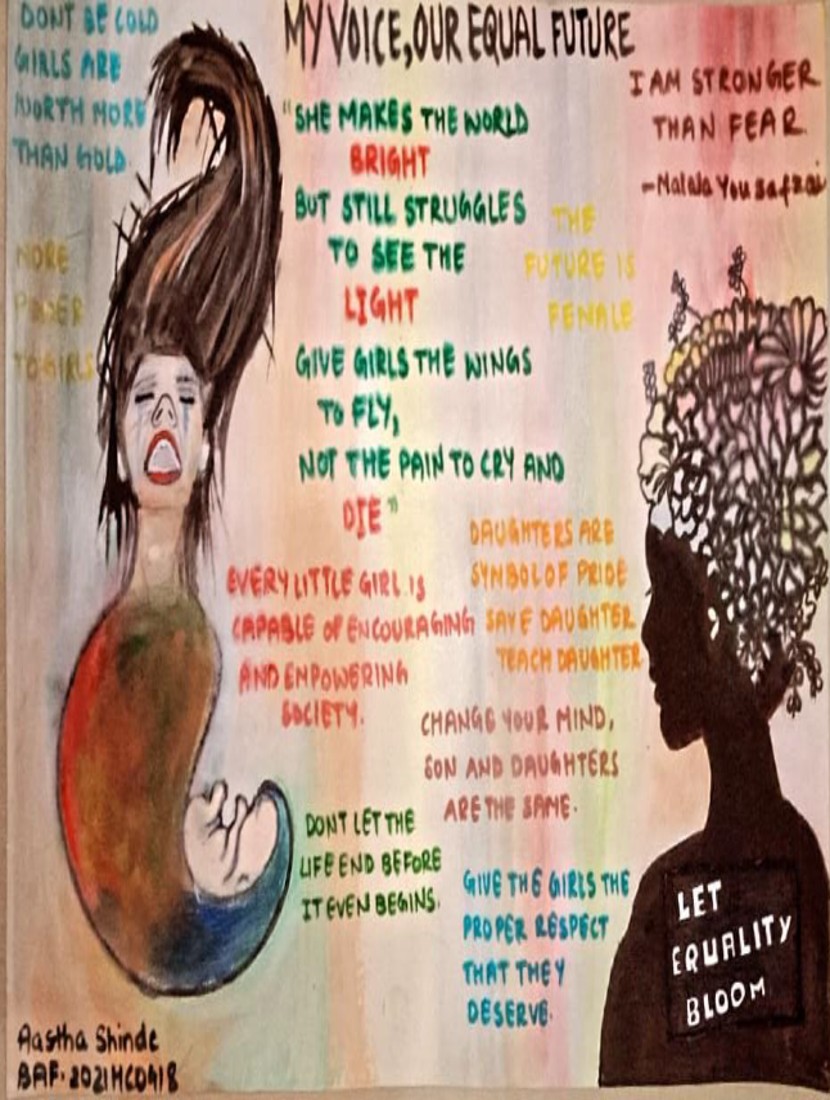 MY VOICE, OUR EQUAL FUTURE
DONT BE COLD
GIRLS ARE
WORTH MORE
THAN GOLD.
MORE
POWER
TO GIRLS
"SHE MAKES THE WORLD
BRIGHT
BUT STILL STRUGGLES
TO SEE THE
LIGHT
GIVE GIRLS THE WINGS
TO FLY,
NOT THE PAIN TO CRY AND
DIE"
I AM STRONGER
THAN FEAR.
-Malala Yousafzai
THE
FUTURE IS
FEMALE
EVERY LITTLE GIRL IS
CAPABLE OF ENCOURAGING
AND EMPOWERING
SOCIETY.
DAUGHTERS ARE
SYMBOL OF PRIDE
SAVE DAUGHTER
TEACH DAUGHTER
CHANGE YOUR MIND,
SON AND DAUGHTERS
ARE THE SAME.
DONT LET THE
LIFE END BEFORE
IT EVEN BEGINS.
GIVE THE GIRLS THE
PROPER RESPECT
THAT THEY
DESERVE.
LET
EQUALITY
BLOOM
Aastha Shinde
BAF. 2021HCD418